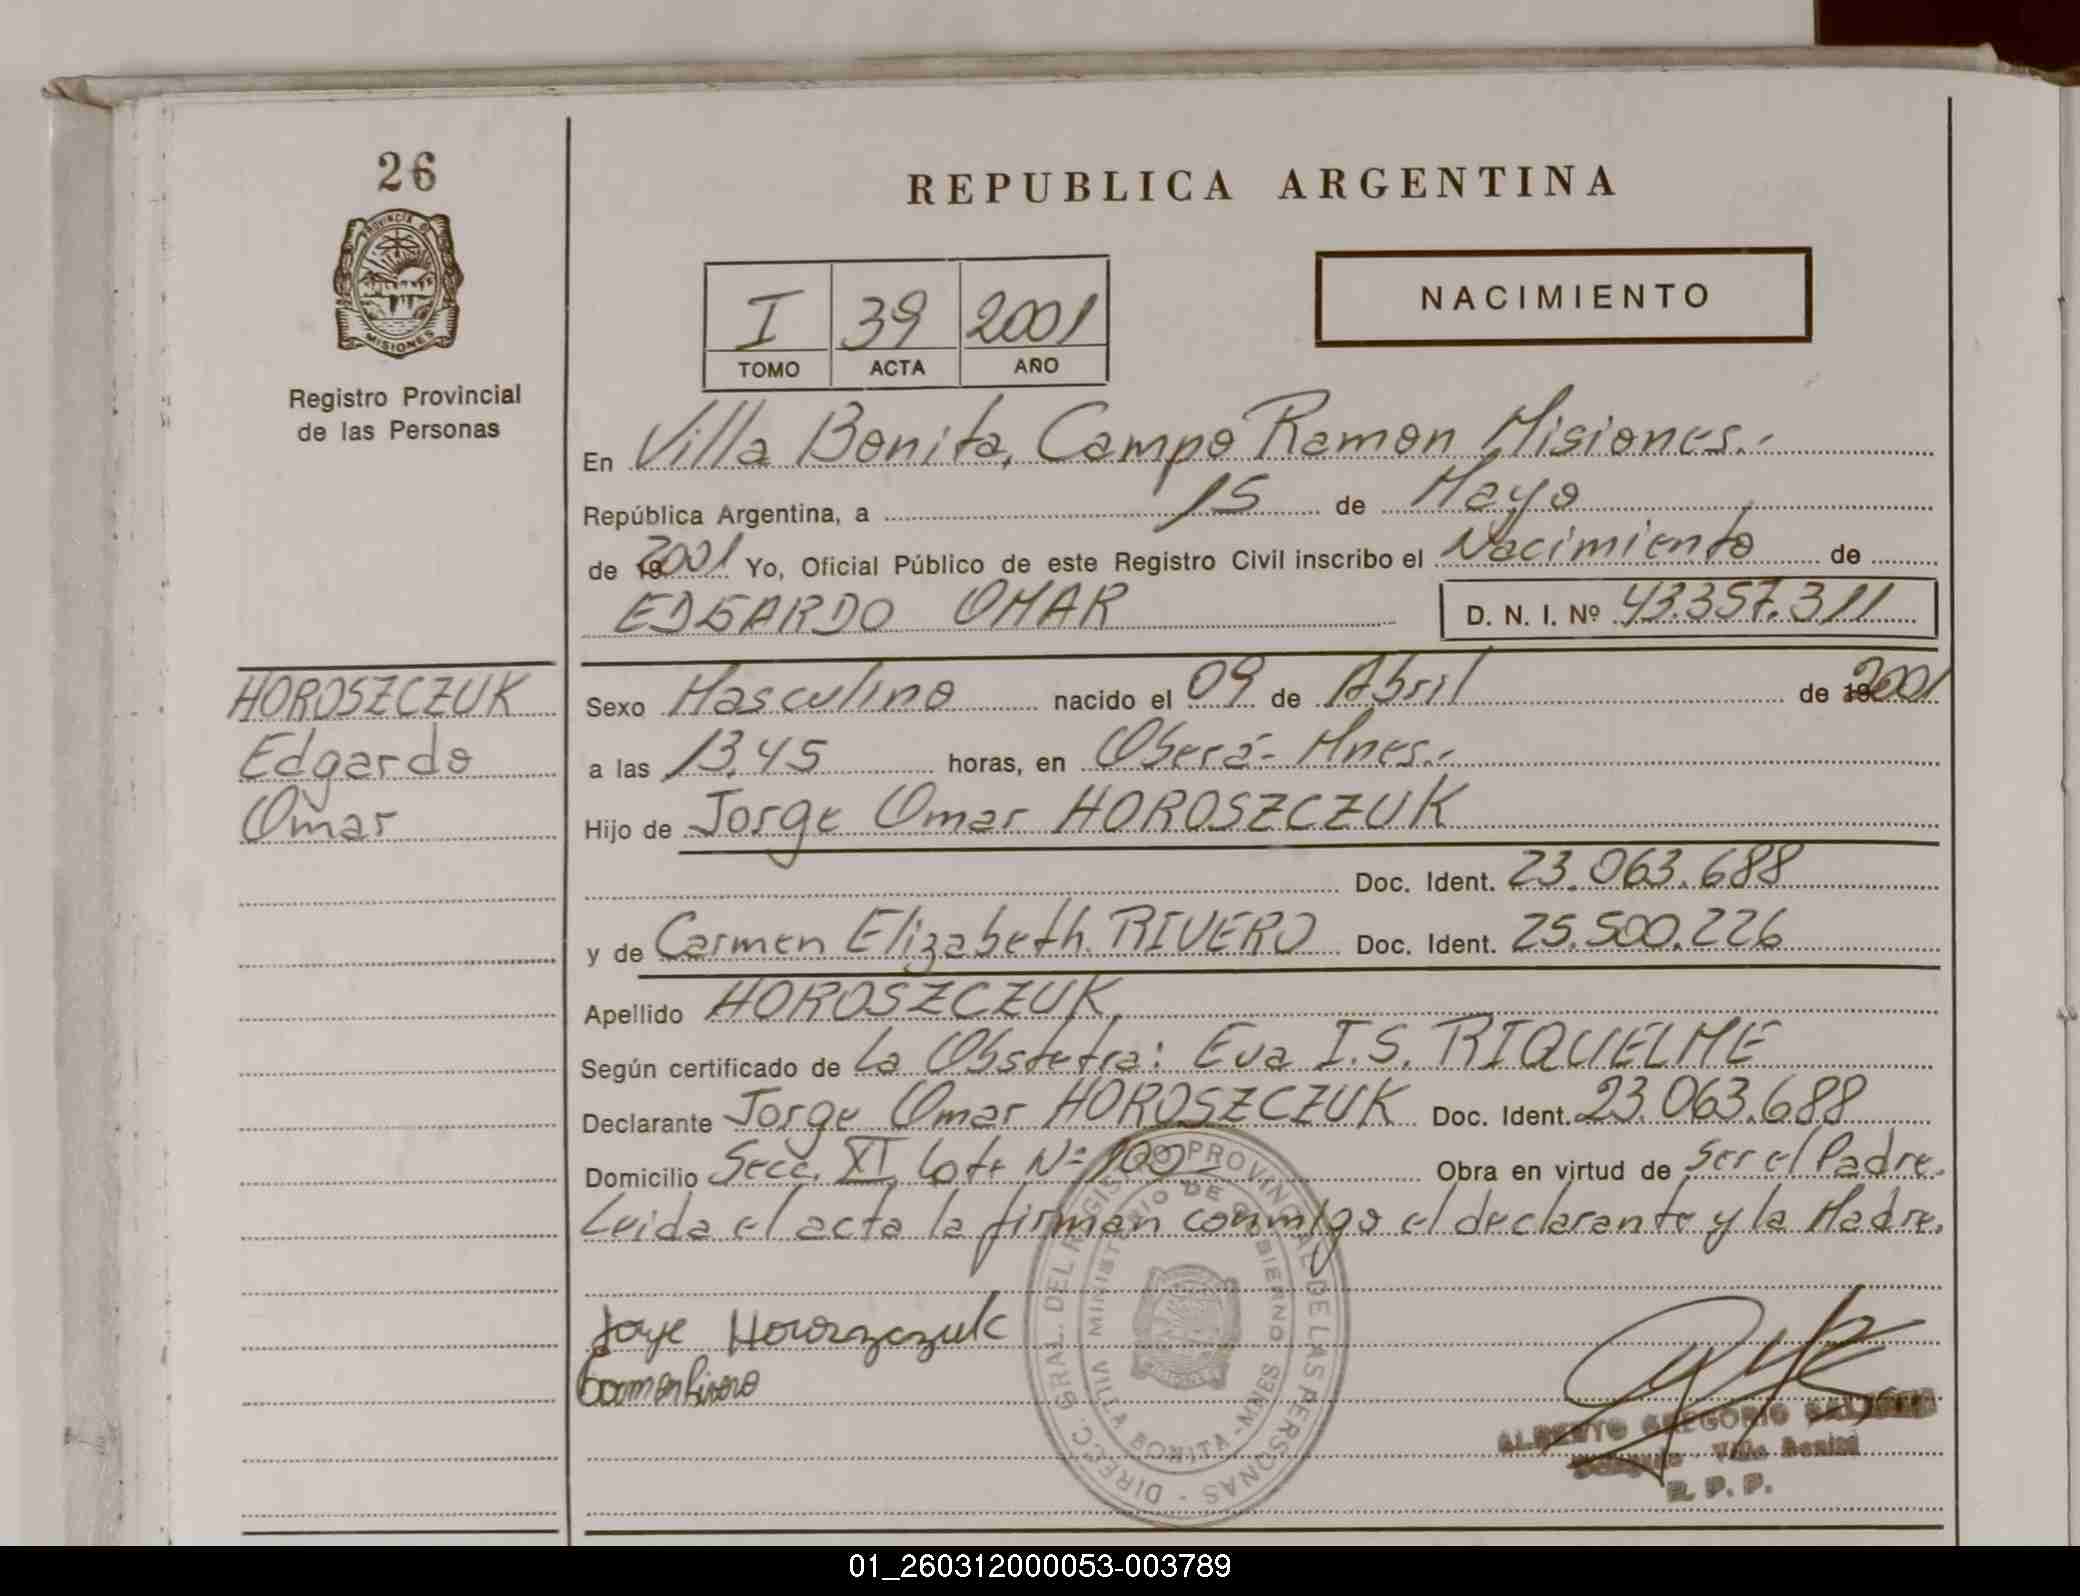 26
PROVINCIA DE
MISIONES
Registro Provincial
de las Personas
REPUBLICA ARGENTINA
I 39 2001
TOMO ACTA AÑO
NACIMIENTO
En Villa Bonita, Campo Ramon Misiones.-
República Argentina, a 15 de Mayo
de 2001 Yo, Oficial Público de este Registro Civil inscribo el Nacimiento de
EDGARDO OMAR D. N. I. Nº 43.357.311
HOROSZCZUK
Edgardo
Omar
Sexo Masculino nacido el 09 de Abril de 2001
a las 13,45 horas, en Oberá- Mnes.-
Hijo de Jorge Omar HOROSZCZUK
Doc. Ident. 23.063.688
y de Carmen Elizabeth RIVERO Doc. Ident. 25.500.226
Apellido HOROSZCZUK
Según certificado de La Obstetra: Eva I.S. RIQUELME
Declarante Jorge Omar HOROSZCZUK Doc. Ident. 23.063.688
Domicilio Secc. XI Lote Nº 100- Obra en virtud de ser el Padre.
Leida el acta la firman conmigo el declarante y la Madre.
Jorge Horoszczuk
Carmen Rivero
DIRECC. GRAL. DEL REGISTRO PROVINCIAL DE LAS PERSONAS -
MINISTERIO DE GOBIERNO
VILLA BONITA - MNES
ALBERTO GREGORIO
Villa Bonita
R. P. P.
01_260312000053-003789